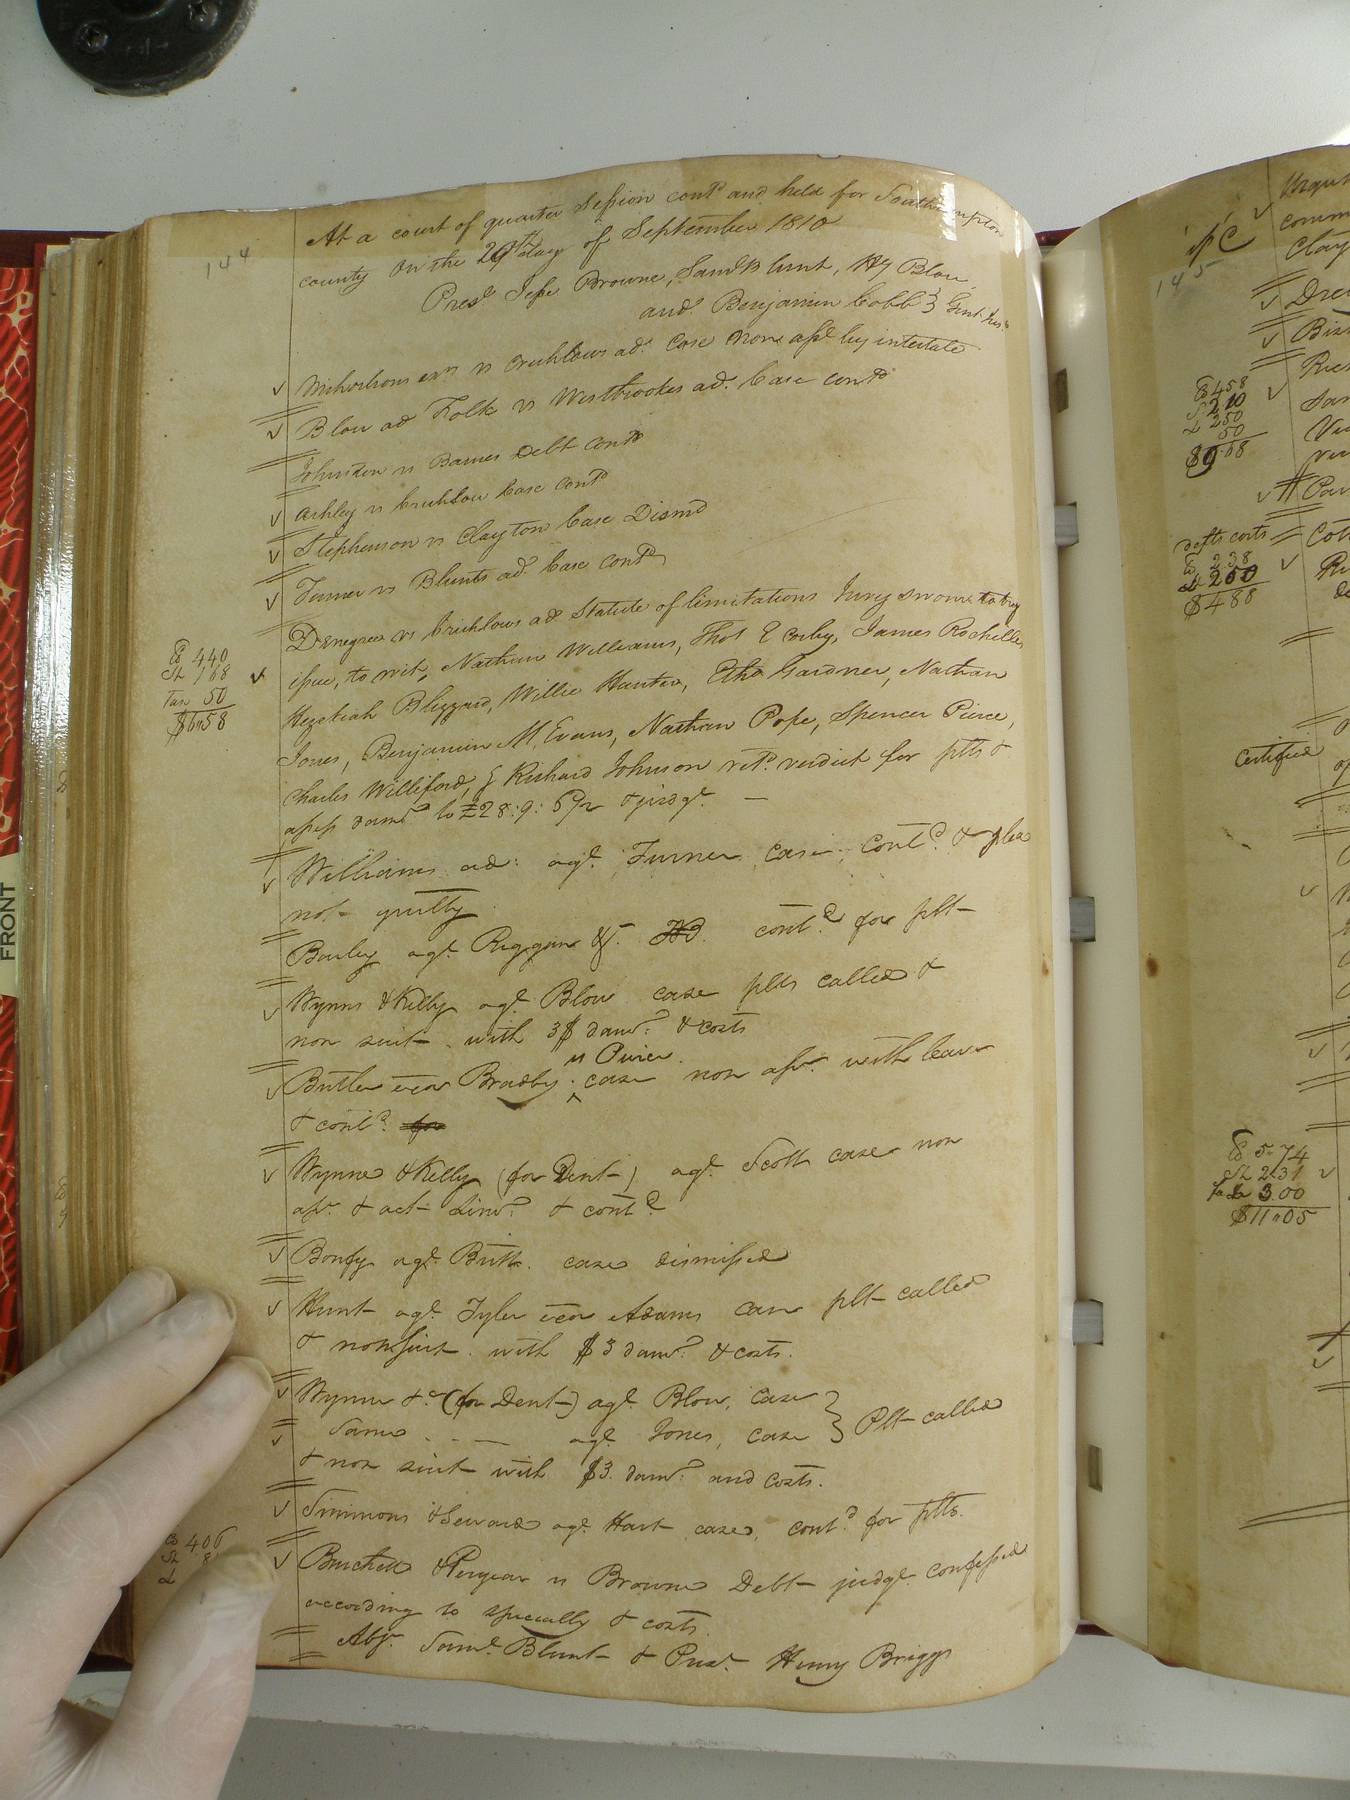 144
At a court of quarter Session contd and held for Southampton
county on the 20th day of September 1810
Prest Jesse Browne, Saml Blunt, Hy Blow,
and Benjamin Cobb } Gent Jus.
vs Crichlows ad. Case non asst by intestate
Blow ad Folk vs Westbrookes ad. Case contd
Johnson vs Barnes Debt contd
Ashley vs Crichlow Case contd
Stephenson vs Clayton Case Dismd
Turner vs Blunts ad. Case contd
vs Crichlows ad Statute of limitations Jury sworn to try
issue, to wit, Nathan Williams, Thos E Corby, James Rochelle
Hezekiah Blizzard, Willie Hunter, Etha Gardner, Nathan
Jones, Benjamin M. Evans, Nathan Pope, Spencer Pierce,
Charles Williford, & Richard Johnson retd verdict for plts &
assess damd to £28:9:5½ & judgt. —
Co 440
Sh 168
Tax 50
$6"58
Williams ad: agt. Turner case; contd. & plea
not guilty
agt. Riggan contd for plt
Wynns & Kelly agt. Blow case plts called &
non suit with 3$ damd. & costs
vs Purier.
Butler exor Bradby case non asst. with leave
& contd. for
Wynns & Kelly (for Dent) agt. Scott case non
asst. & act Limd. & contd
agt. Britt. case dismissed
Hunt agt. Tyler exor Adams case plt called
& nonsuit. with $3 damd. & costs.
Wynns &c (for Dent) agt. Blow, case } Plt called
Same . . — agt. Jones, case
& non suit with $3. damd. and costs.
Simmons & Seward agt. Hart case, contd for plts.
Burchett & Puryear vs Browne Debt judgt. confessed
according to specialty & costs.
Co 406
Sh
Abst. Saml. Blunt & Prest. Henry Briggs
if C
145
Co 458
Sh 210
L 250
50
$9.68
defts costs
Co 238
L 250
$4 88
Certified
Co 5-74
Sh 2-31
3.00
$11"05